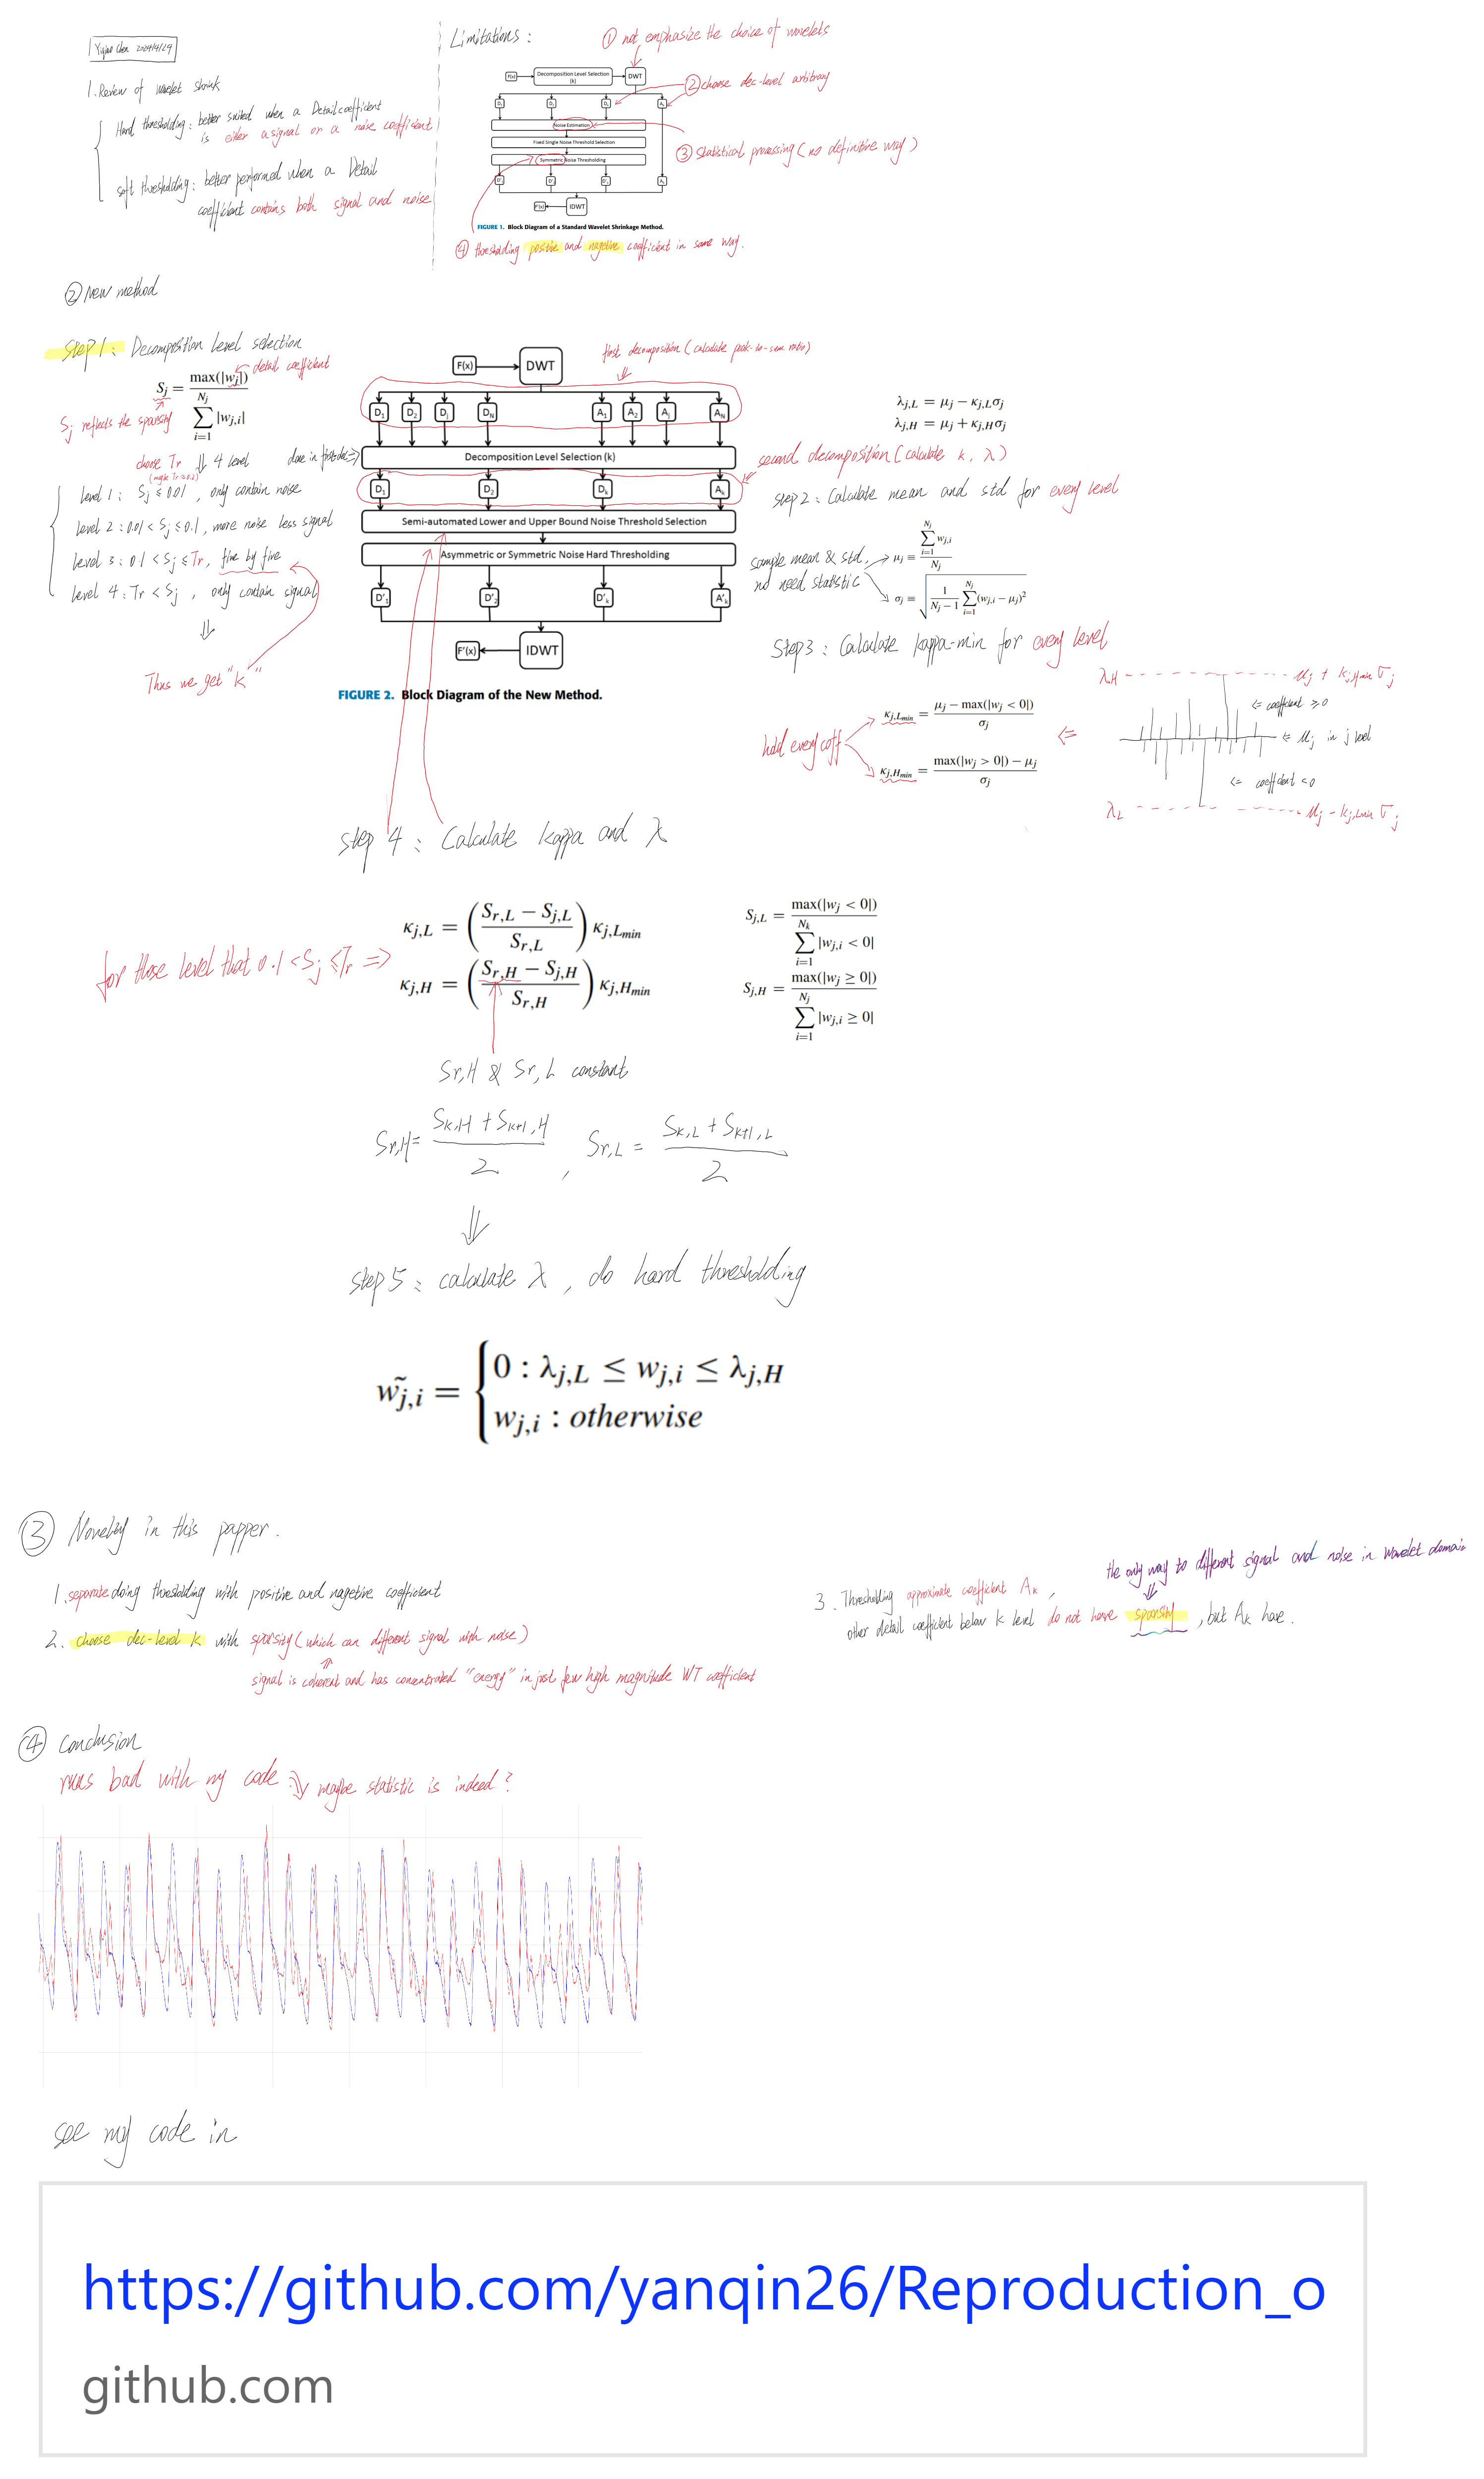 Yiqian Chen 2024/4/29
1. Review of wavelet shrink
Hard thresholding: better suited when a Detail coefficient
is either a signal or a noise coefficient
soft thresholding: better performed when a Detail
coefficient contains both signal and noise
Limitations:
① not emphasize the choice of wavelets
② choose dec-level arbitrary
③ Statistical processing (no definitive way)
F(x)
Decomposition Level Selection
(k)
DWT
Noise Estimation
Fixed Single Noise Threshold Selection
Symmetric Noise Thresholding
F'(x)
IDWT
FIGURE 1. Block Diagram of a Standard Wavelet Shrinkage Method.
④ thresholding positive and nagetive coefficient in same way.
② New method
Step 1: Decomposition Level selection
S_j = max(|w_j|) / Σ_{i=1}^{N_j} |w_{j,i}|
detail coefficient
S_j reflects the sparsity
choose Tr ⇓ 4 level
level 1: S_j ≤ 0.01, only contain noise
level 2: 0.01 < S_j ≤ 0.1, more noise less signal
level 3: 0.1 < S_j ≤ Tr, five by five
level 4: Tr < S_j, only contain signal
⇓
Thus we get "k"
first decomposition (calculate peak-to-sum ratio)
F(x) DWT
D1 D2 Dj DN A1 A2 Aj AN
Decomposition Level Selection (k)
D1 D2 Dk Ak
Semi-automated Lower and Upper Bound Noise Threshold Selection
Asymmetric or Symmetric Noise Hard Thresholding
D'1 D'2 D'k A'k
F'(x) IDWT
FIGURE 2. Block Diagram of the New Method.
λ_{j,L} = μ_j − κ_{j,L}σ_j
λ_{j,H} = μ_j + κ_{j,H}σ_j
second decomposition (calculate k, λ)
step 2: Calculate mean and std for every level
sample mean & std,
no need statistic
μ_j = Σ_{i=1}^{N_j} w_{j,i} / N_j
σ_j = √(1/(N_j − 1) Σ_{i=1}^{N_j} (w_{j,i} − μ_j)²)
Step 3: Calculate kappa-min for every level
hold every coff
κ_{j,Lmin} = (μ_j − max(|w_j < 0|)) / σ_j
κ_{j,Hmin} = (max(|w_j > 0|) − μ_j) / σ_j
⇐
λ_H μ_j + k_{j,Hmin} σ_j
⇐ coefficient ≥ 0
⇐ μ_j in j level
⇐ coefficient < 0
λ_L μ_j − k_{j,Lmin} σ_j
step 4: Calculate kappa and λ
for those level that 0.1 < S_j ≤ Tr ⇒
κ_{j,L} = ((S_{r,L} − S_{j,L}) / S_{r,L}) κ_{j,Lmin}
κ_{j,H} = ((S_{r,H} − S_{j,H}) / S_{r,H}) κ_{j,Hmin}
S_{j,L} = max(|w_j < 0|) / Σ_{i=1}^{N_k} |w_{j,i} < 0|
S_{j,H} = max(|w_j ≥ 0|) / Σ_{i=1}^{N_j} |w_{j,i} ≥ 0|
Sr,H & Sr,L constant
Sr,H = (Sk,H + Sk+1,H) / 2, Sr,L = (Sk,L + Sk+1,L) / 2
⇓
step 5: calculate λ, do hard thresholding
w̃_{j,i} = { 0 : λ_{j,L} ≤ w_{j,i} ≤ λ_{j,H}
w_{j,i} : otherwise
③ Novelty in this papper.
1. separate doing thresholding with positive and nagetive coefficient
2. choose dec-level k with sparsity (which can different signal with noise)
signal is coherent and has concentrated "energy" in just few high magnitude WT coefficient
the only way to different signal and noise in wavelet domain
3. Thresholding approximate coefficient Ak,
other detail coefficient below k level do not have sparsity, but Ak have.
④ conclusion
runs bad with my code ⇒ maybe statistic is indeed?
see my code in
https://github.com/yanqin26/Reproduction_o
github.com